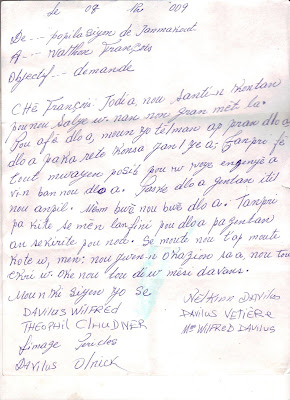 le 08 009
De --- popilasyon de Janmakout
A --- Walther François
Objectif -- demande
CHÈ François: Jodia, nou santi-n kontan
pou nou salye w nan non gran mèt la.
Pou afè dlo a, moun yo tèlman ap pran dlo,
dlo a paka rete konsa gan l ye a; Tanpri fè
tout mwayen posib pou w voye enjenyè a
vin ban nou dlo a. Paske dlo a gentan itil
nou anpil. Mem bwè nou bwè dlo a. Tanpri
pa kite se mèn lanfini pou dlo a pa gentan
an sekirite pou nou. Se moute nou t ap moute
kote w, men: nou gwen-n okazion sa a, nou tou
ekri w. Oke nou tou di w mèsi davans.
Moun ki siyen yo se
DAVILUS WILFRED
THEOPHIL CLAUDNER
Simage Pericles
DAVILUS Olrick
DAVILUS
DAVILUS VETIERE
Me WILFRED DAVILUS